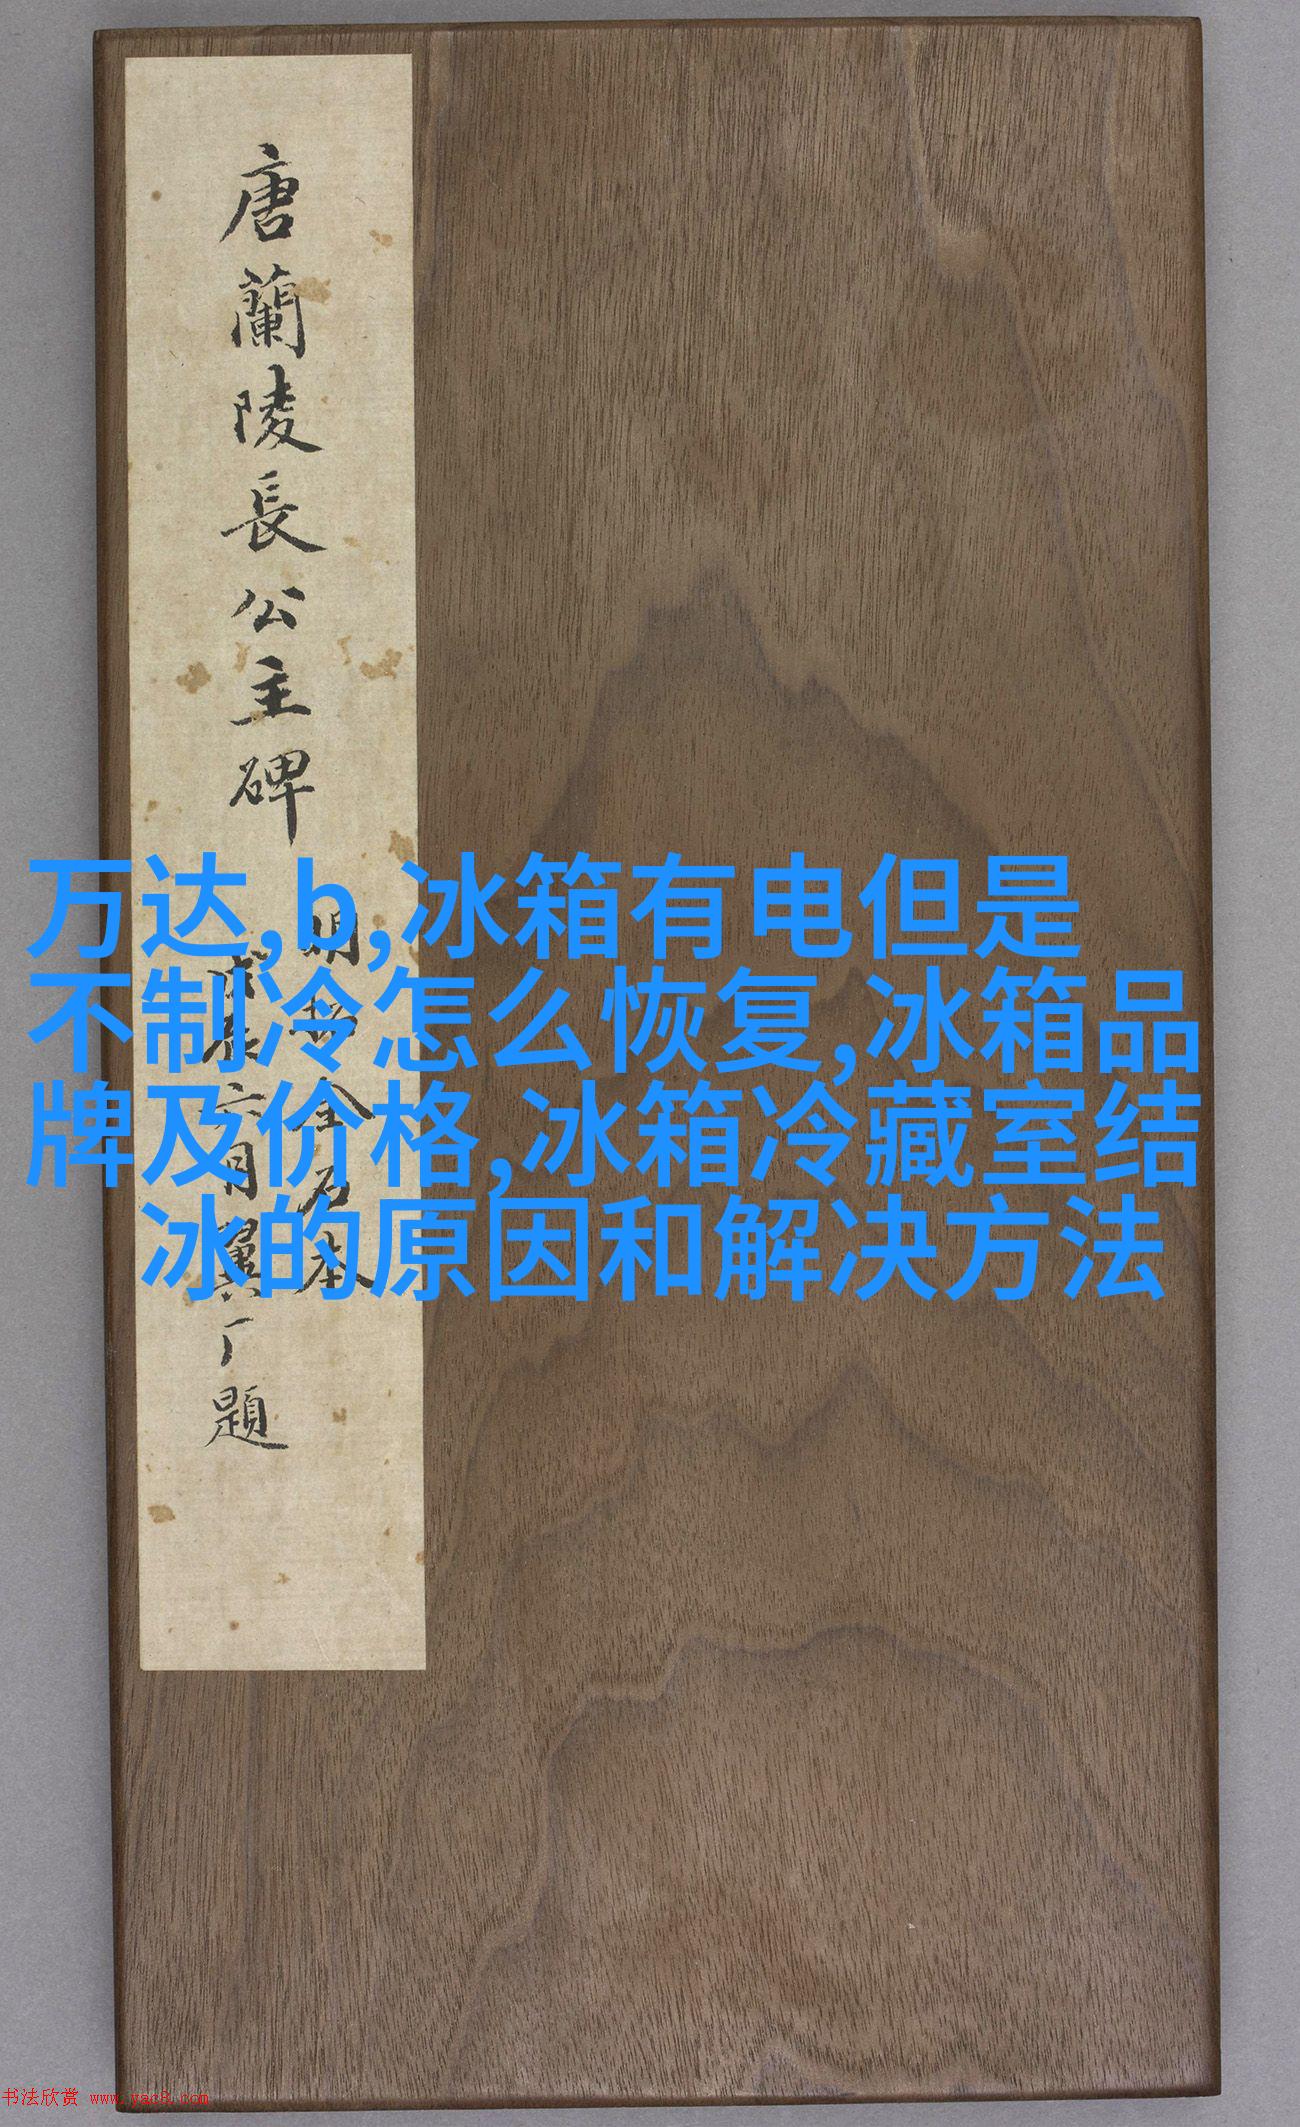 唐蘭陵長公主碑
明拓全石本
戊辰六月
题
万达,b,冰箱有电但是
不制冷怎么恢复,冰箱品
牌及价格,冰箱冷藏室结
冰的原因和解决方法
书法欣赏 www.yac8.com